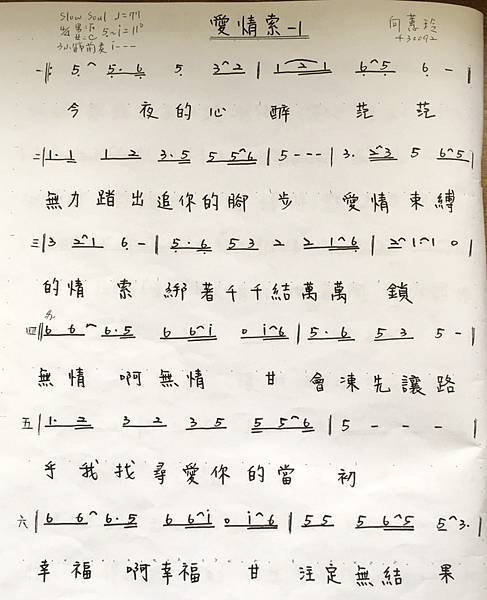 Slow Soul ♩=77
愛情索-1
向蕙玲
43092
3小節前奏 i---
一 ‖: 5⌒ 5. 6 5 3⌒2 | 1 2 1 6⌒5 6 - |
今 夜的心 醉 茫 茫
二 | 1. 1 1 2 3. 5 5 5⌒6 | 5 - - - | 3. 2⌒3 5 6⌒5 |
無力踏出追你的腳 步 愛情束縛
三 | 3 2⌒1 6 - | 5. 6 5 3 2 2 1⌒6 | 2⌒1⌒1 0 |
的情 索 綁著千千結萬萬 鎖
四 ‖ 6 6⌒ 6. 5 6 6⌒i 0 i⌒6 | 5. 6 5 3 5 - |
無情 啊無情 甘 會凍先讓路
五 | 1. 2 3 2 3 5 5 5⌒6 | 5 - - - |
乎我找尋愛你的當 初
六 | 6 6⌒ 6. 5 6 6⌒i 0 i⌒6 | 5 5 5 6⌒5 5⌒3. |
幸福 啊幸福 甘 注定無結 果